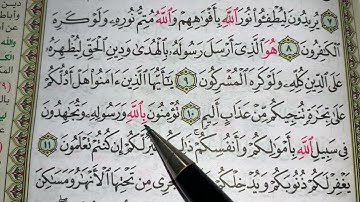 يُرِيدُونَ لِيُطْفِـُٔوا۟ نُورَ ٱللَّهِ بِأَفْوَٰهِهِمْ وَٱللَّهُ مُتِمُّ نُورِهِۦ وَلَوْ كَرِهَ
ٱلْكَٰفِرُونَ ٨ هُوَ ٱلَّذِىٓ أَرْسَلَ رَسُولَهُۥ بِٱلْهُدَىٰ وَدِينِ ٱلْحَقِّ لِيُظْهِرَهُۥ
عَلَى ٱلدِّينِ كُلِّهِۦ وَلَوْ كَرِهَ ٱلْمُشْرِكُونَ ٩ يَٰٓأَيُّهَا ٱلَّذِينَ ءَامَنُوا۟ هَلْ أَدُلُّكُمْ
عَلَىٰ تِجَٰرَةٍ تُنجِيكُم مِّنْ عَذَابٍ أَلِيمٍ ١٠ تُؤْمِنُونَ بِٱللَّهِ وَرَسُولِهِۦ وَتُجَٰهِدُونَ
فِى سَبِيلِ ٱللَّهِ بِأَمْوَٰلِكُمْ وَأَنفُسِكُمْ ذَٰلِكُمْ خَيْرٌ لَّكُمْ إِن كُنتُمْ تَعْلَمُونَ ١١
يَغْفِرْ لَكُمْ ذُنُوبَكُمْ وَيُدْخِلْكُمْ جَنَّٰتٍ تَجْرِى مِن تَحْتِهَا ٱلْأَنْهَٰرُ وَمَسَٰكِنَ